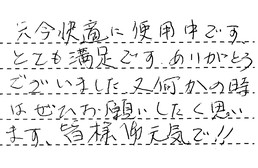 只今快適に使用中です。
とても満足です。ありがとう
ございました。又何かの時
はぜひお願いしたく思い
ます。皆様御元気で!!